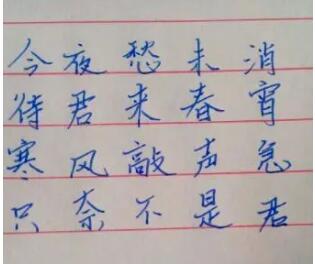 今夜愁未消
待君来春宵
寒风敲声急
只奈不是君